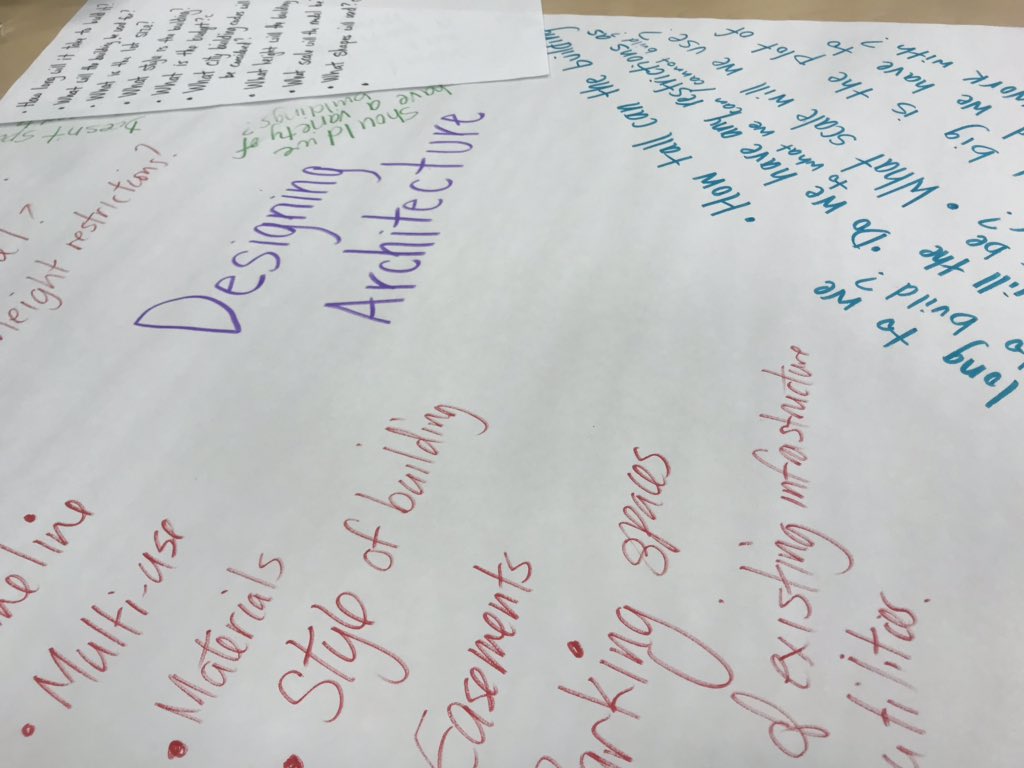 Designing
Architecture
• How long will it take to build it?
• What will the building be used for?
• What is the lot size?
• What style is the building?
• What is the budget?
• What city building codes will
be
• What height will the building
• What scale will the model be
• What shape
should we
have a
variety of
buildings?
Doesn't
height restrictions?
meline
• Multi-use
• Materials
• Style of building
Easements
• arking spaces
of existing infrastructure
utilities.
• How tall can the building
• Do we have any restrictions as
to what we can/cannot
• What scale will we use?
big is the plot of
we have to
work with?
long
to we
to build?
will the
be